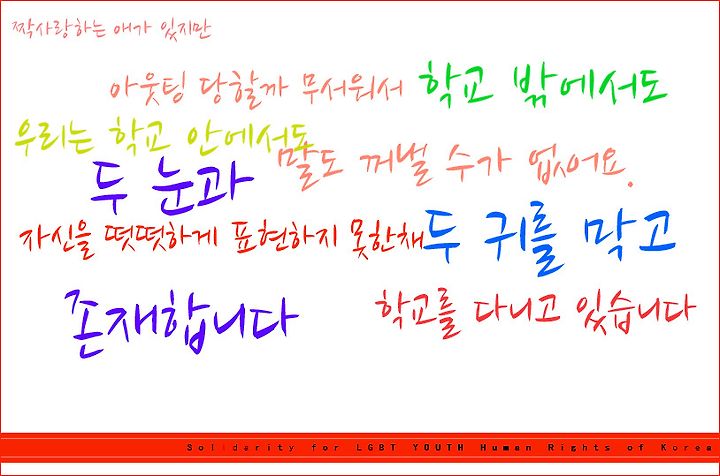 짝사랑하는 애가 있지만
아웃팅 당할까 무서워서 학교 밖에서도
우리는 학교 안에서도
두 눈과 말도 꺼낼 수가 없어요.
자신을 떳떳하게 표현하지 못한채 두 귀를 막고
존재합니다 학교를 다니고 있습니다
Solidarity for LGBT YOUTH Human Rights of Korea